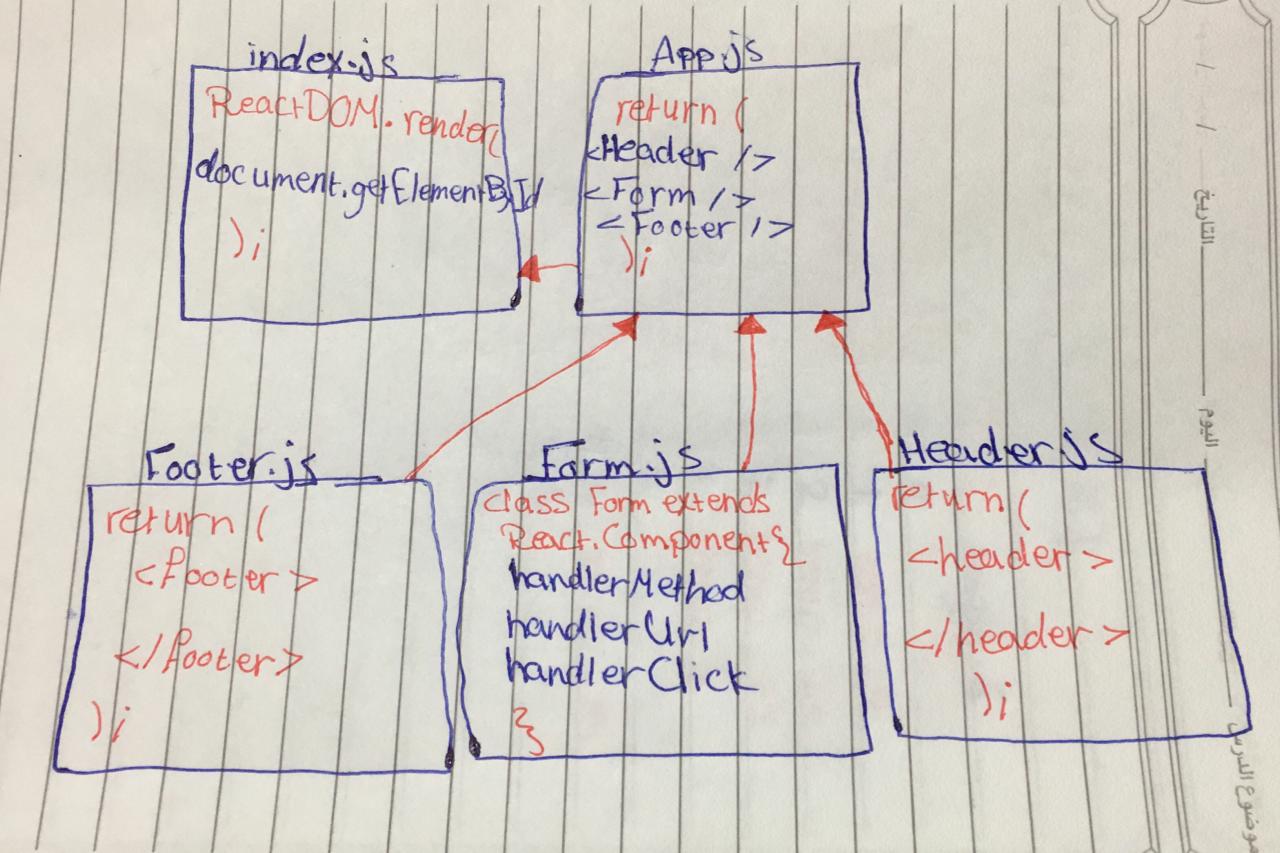 index.js
ReactDOM.render(
document.getElementById
);
App.js
return (
<Header />
<Form />
<Footer />
);
Footer.js
return (
<footer>
</footer>
);
Form.js
class Form extends
React.Component{
handlerMethod
handlerUrl
handlerClick
}
Header.js
return (
<header>
</header>
);
التاريخ / /
اليوم
موضوع الدرس